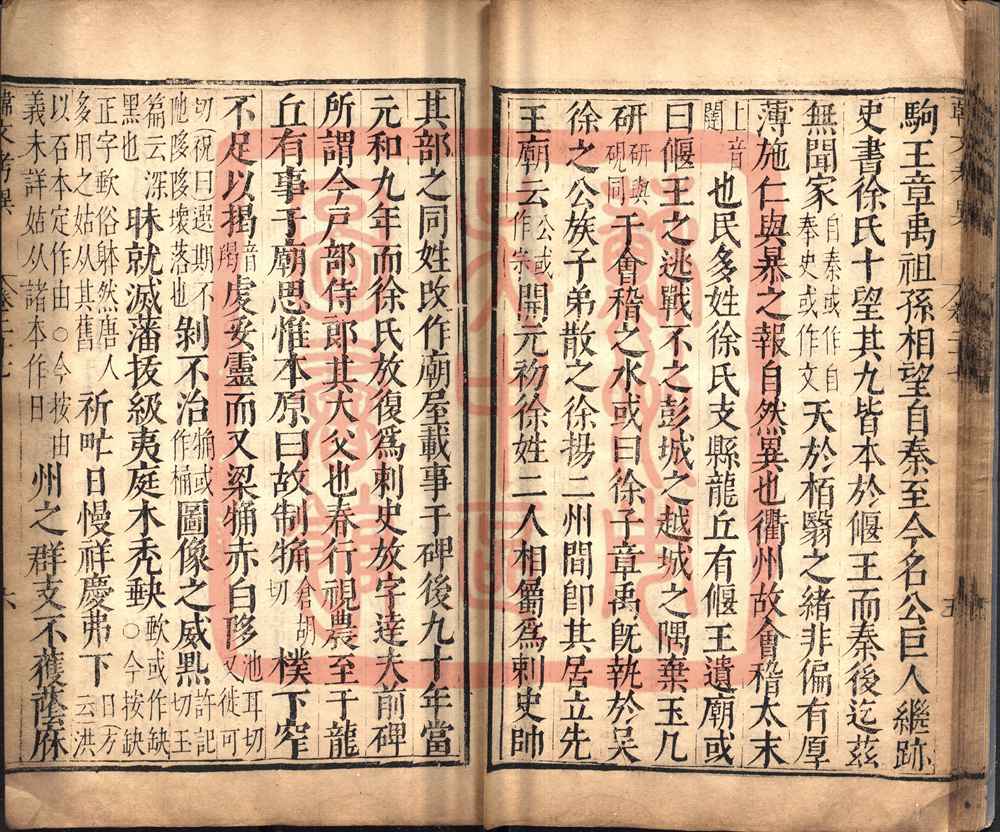 駒王章禹祖孫相望自秦至今名公巨人繼跡
史書徐氏十望其九皆本於偃王而秦後迄茲
無聞家自秦或作自奉史或作文天於栢翳之緒非偏有厚
薄施仁與暴之報自然異也衢州故會稽太末
上音闥也民多姓徐氏支縣龍丘有偃王遺廟或
曰偃王之逃戰不之彭城之越城之隅棄玉几
研研與硯同于會稽之水或曰徐子章禹旣執於吳
徐之公族子弟散之徐揚二州間即其居立先
王廟云公或作宗開元初徐姓二人相屬爲刺史帥
其部之同姓改作廟屋載事于碑後九十年當
元和九年而徐氏放復爲刺史放字達夫前碑
所謂今戶部侍郎其大父也春行視農至于龍
丘有事于廟思惟本原曰故制粗倉胡切樸下窄
不足以揭音羯虔妥靈而又梁桷赤白陊池耳切又徒可
切祝曰選期不陁陊壞落也剝不治桷或作桶圖像之威點許記切玉
篇云深黑也昧就滅潘拔級夷庭木禿缺缺或作缺○今按缺
正字軟俗躰然唐人多用之姑从其舊祈甿日慢祥慶弗下日方云洪
以石本定作由○今按由義未詳姑从諸本作日州之群支不獲蔭庥